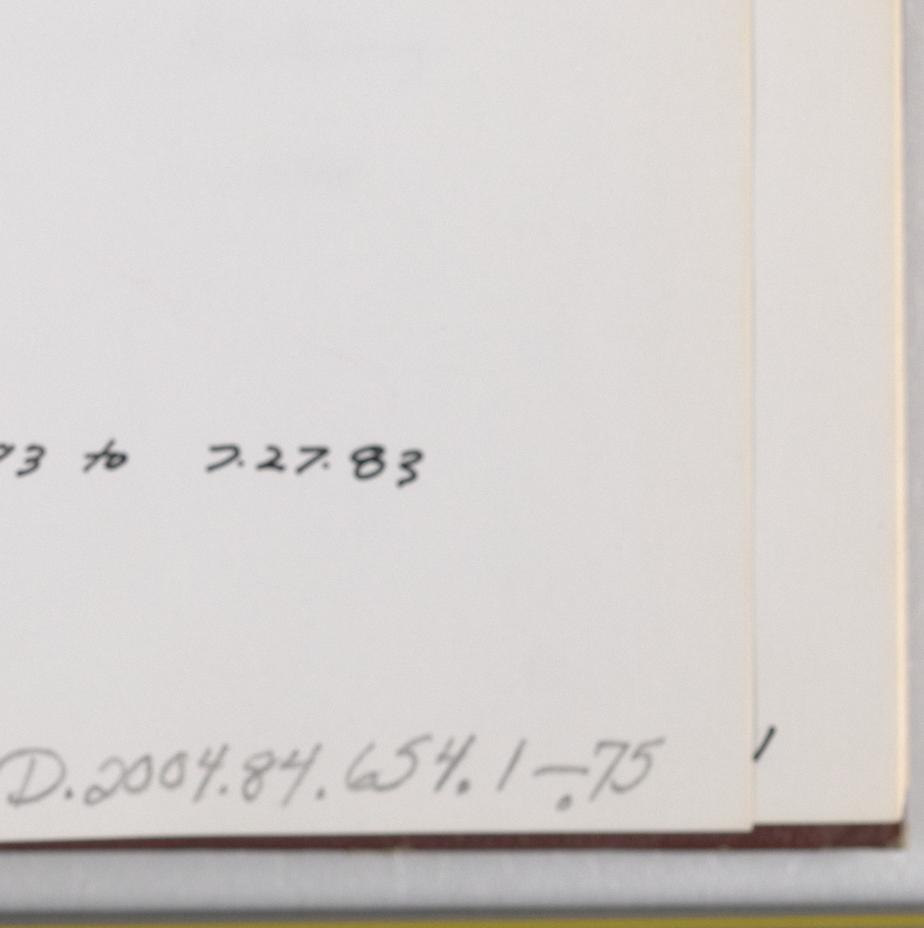 3 to 7.27.83
D.2004.84.654.1-.75
1